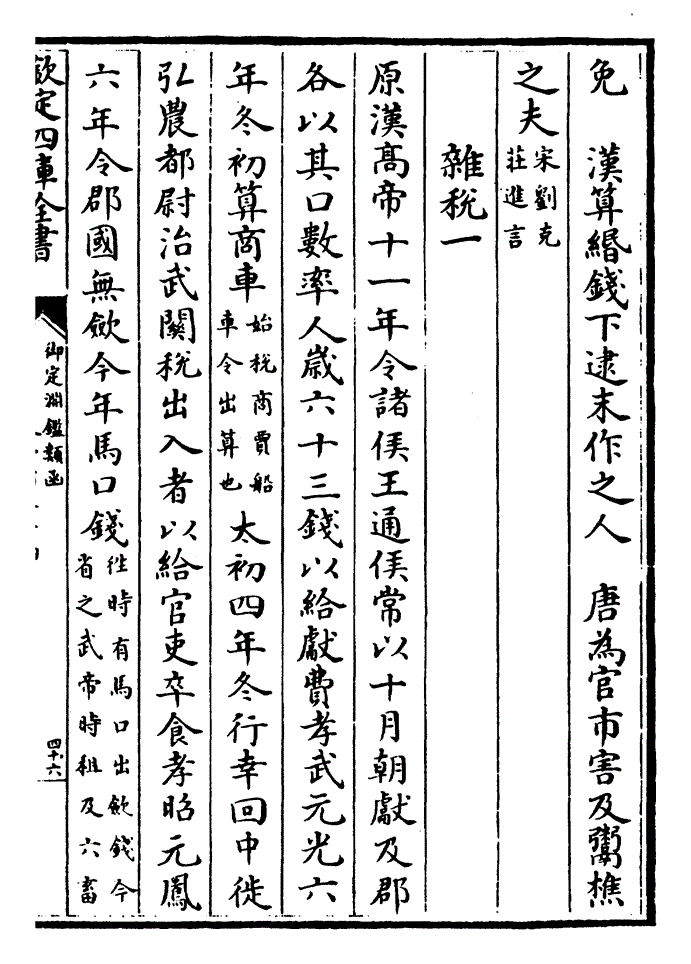 免　漢算緡錢下逮末作之人　唐為官市害及鬻樵
之夫宋劉克莊進言
雜稅一
原漢髙帝十一年令諸侯王通侯常以十月朝獻及郡
各以其口數率人歲六十三錢以給獻費孝武元光六
年冬初算商車始稅商賈船車令出算也太初四年冬行幸回中徙
弘農都尉治武關稅出入者以給官吏卒食孝昭元鳳
六年令郡國無斂今年馬口錢往時有馬口出斂錢今省之武帝時租及六畜
欽定四庫全書
御定淵鑑類函
四十六